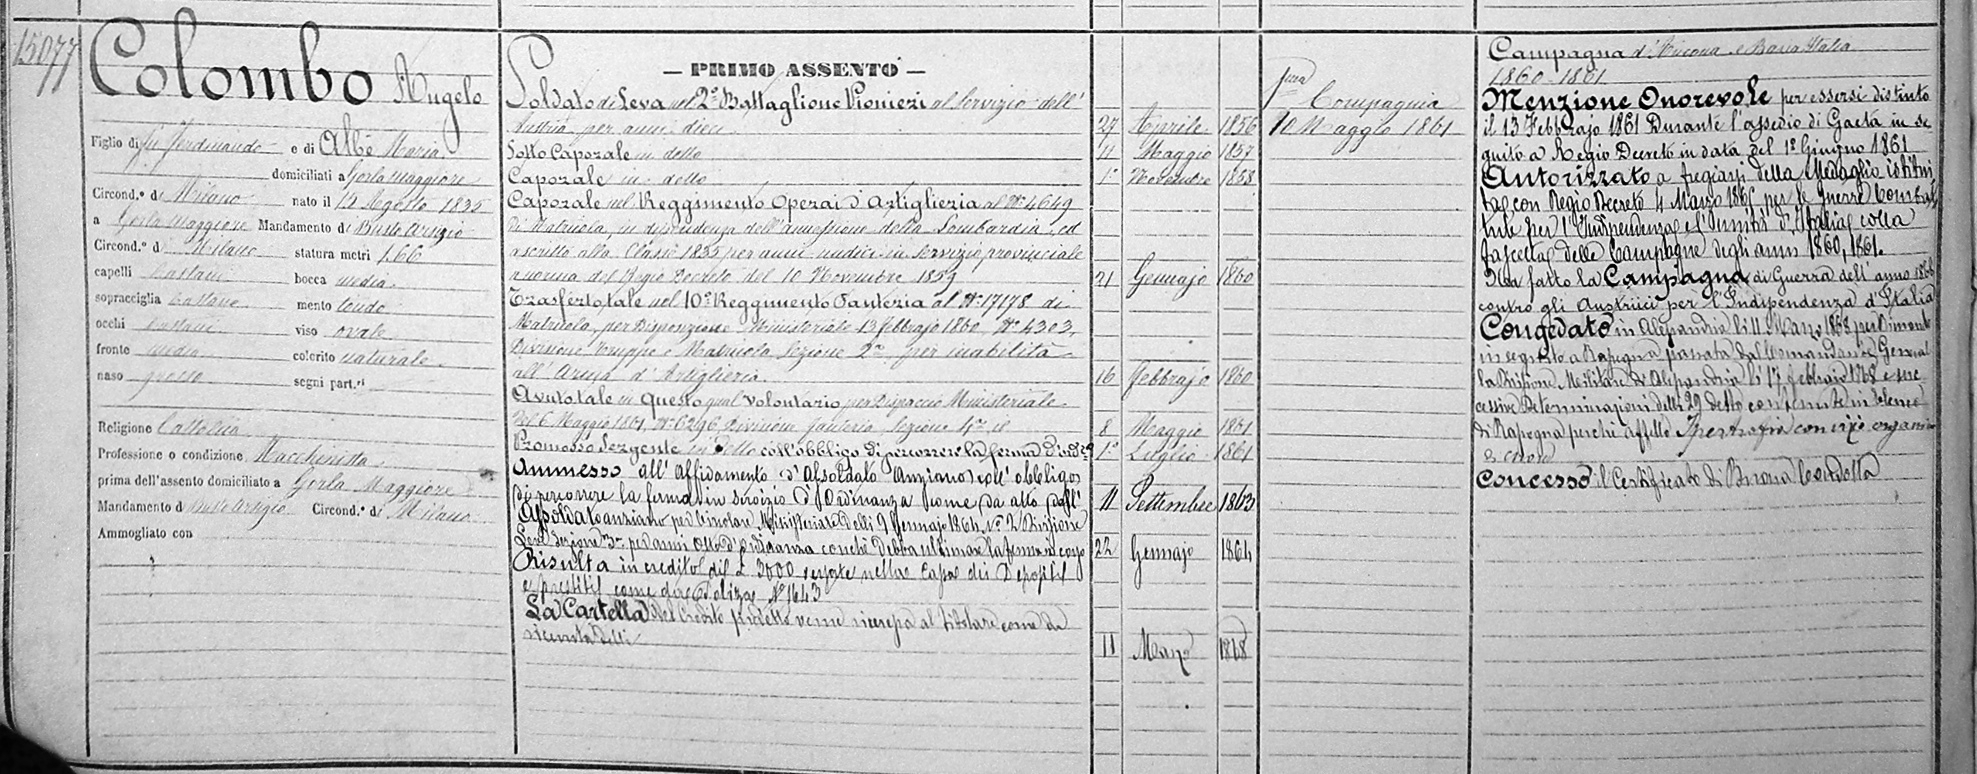 15077
Colombo Angelo
Figlio di fu Ferdinando e di Albè Maria
domiciliati a Gorla Maggiore
Circond.° di Milano nato il 15 Agosto 1835
a Gorla Maggiore Mandamento di Busto Arsizio
Circond.° di Milano statura metri 1,66
capelli castani bocca media
sopracciglia castane mento tondo
occhi castani viso ovale
fronte media colorito naturale
naso grosso segni part.ri
Religione Cattolica
Professione o condizione Macchinista
prima dell'assento domiciliato a Gorla Maggiore
Mandamento di Busto Arsizio Circond.° di Milano
Ammogliato con
— PRIMO ASSENTO —
Soldato di Leva nel 2° Battaglione Pionieri al Servizio dell'
Austria per anni dieci 27 Aprile 1856
Sotto Caporale in detto 11 Maggio 1857
Caporale in detto 1° Novembre 1858
Caporale nel Reggimento Operai d'Artiglieria al N° 4649
di Matricola, in dipendenza dell'annessione della Lombardia, ed
ascritto alla Classe 1835 per anni undici in servizio provinciale
a norma del Regio Decreto del 10 Novembre 1859 21 Gennajo 1860
Trasferto tale nel 10° Reggimento Fanteria al N° 17178 di
Matricola, per Disposizione Ministeriale 13 febbrajo 1860, N° 4303,
Divisione Truppe e Matricola Sezione 2a per inabilità
all'Arma d'Artiglieria 16 febbrajo 1860
Avuto tale in Questo qual volontario per Dispaccio Ministeriale
del 6 Maggio 1861, N° 6296, Divisione fanteria, Sezione 8 Maggio 1861
Promosso Sergente in detto coll'obbligo di percorrere la ferma 1° Luglio 1861
Ammesso all'affidamento d'Assoldato Anziano coll'obbligo
di percorrere la ferma in servizio d'Ordinanza come da atto dell' 11 Settembre 1863
Assoldato anziano per Circolare Ministeriale delli 9 Gennajo 1864 N° 2 Divisione
Leve Sezione 3a per anni otto d'ordinanza cosichè debba ultimare la ferma in corso 22 Gennajo 1864
Risulta in credito di L 3000 versate nella Cassa dei Depositi
e prestiti come da Polizza N° 1643
La Cartella del Credito predetto venne rimessa al titolare come da
ricevuta delli 11 Marzo 1868
1ma Compagnia
10 Maggio 1861
Campagna d'Ancona e Bassa Italia
1860-1861
Menzione Onorevole per essersi distinto
il 13 Febbrajo 1861 Durante l'assedio di Gaeta in se
guito a Regio Decreto in data del 1° Giugno 1861
Autorizzato a fregiarsi della Medaglia istitui
ta con Regio Decreto 4 Marzo 1865 per le Guerre Combat
tute per l'Indipendenza e l'Unità d'Italia colla
fascetta delle Campagne degli anni 1860, 1861.
Ha fatto la Campagna di Guerra dell'anno 1866
contro gli Austriaci per l'Indipendenza d'Italia
Congedato in Alessandria li 11 Marzo 1868 per Rimando
in seguito a Rassegna passata dal Comandante Genera
la Divisione Militare di Alessandria li 17 febbraio 1868 e suc
cessive Determinazioni delli 29 detto contenute in elenco
di Rassegna perchè affetto Ipertrofia con vizio organico
di cuore
Concesso il Certificato di Buona Condotta